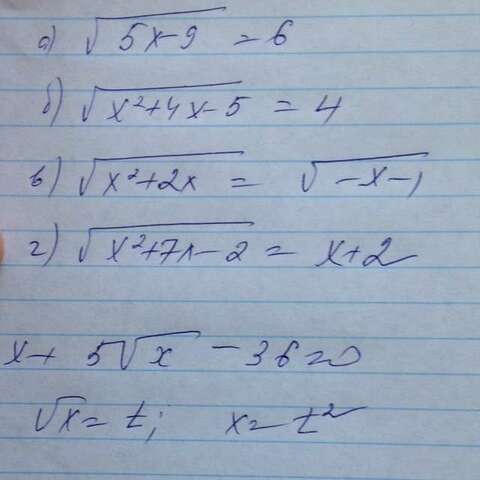 а) √(5x-9) = 6
б) √(x²+4x-5) = 4
в) √(x²+2x) = √(-x-1)
г) √(x²+7x-2) = x+2
x+ 5√x -36=0
√x = t; x = t²